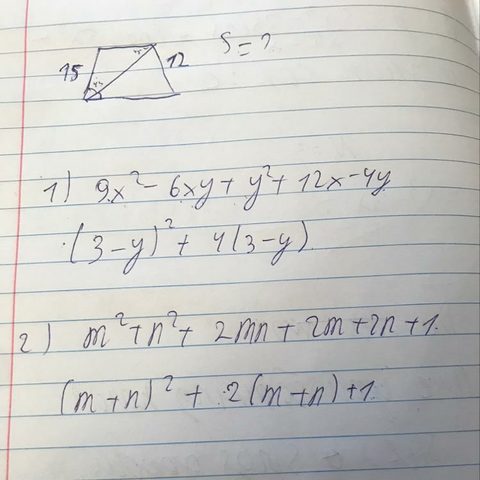 15 12 S = ?
1) 9x² - 6xy + y² + 12x - 4y
(3 - y)² + 4(3 - y)
2) m² + n² + 2mn + 2m + 2n + 1.
(m + n)² + 2(m + n) + 1.